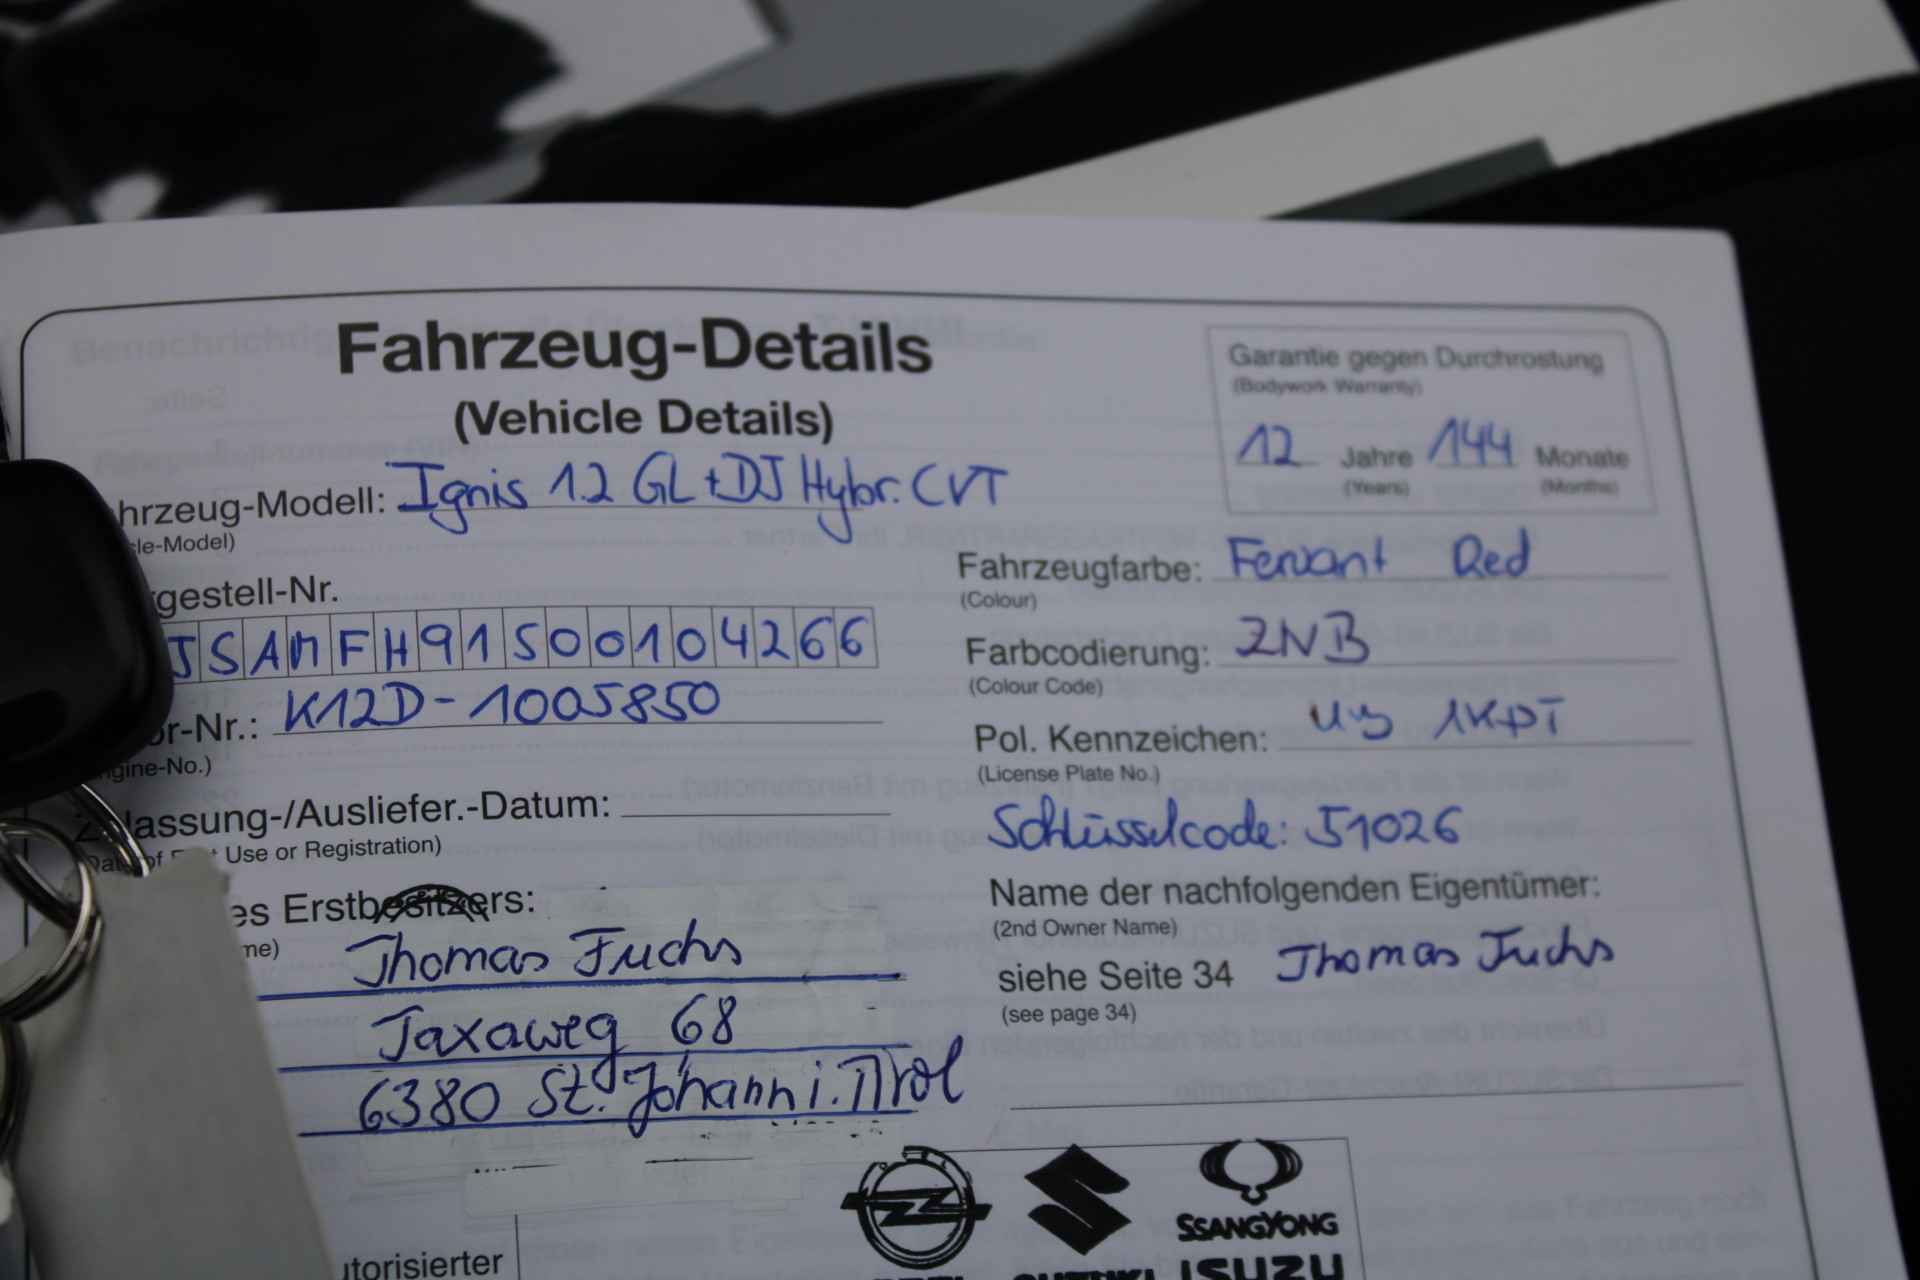 Fahrzeug-Details
(Vehicle Details)
Garantie gegen Durchrostung
(Bodywork Warranty)
12 Jahre 144 Monate
(Years) (Months)
hrzeug-Modell: Ignis 1.2 GL+DJ Hybr. CVT
cle-Model)
gestell-Nr.
JSAMFH91S00104266
or-Nr.: K12D-1005850
ngine-No.)
Zulassung-/Ausliefer.-Datum:
Use or Registration)
es Erstbesitzers:
me)
Thomas Fuchs
Taxaweg 68
6380 St. Johann i. Tirol
Fahrzeugfarbe: Fervant Red
(Colour)
Farbcodierung: ZNB
(Colour Code)
Pol. Kennzeichen:
(License Plate No.)
Schlüsselcode: 51026
Name der nachfolgenden Eigentümer:
(2nd Owner Name)
siehe Seite 34 Thomas Fuchs
(see page 34)
utorisierter
SSANGYONG
ISUZU